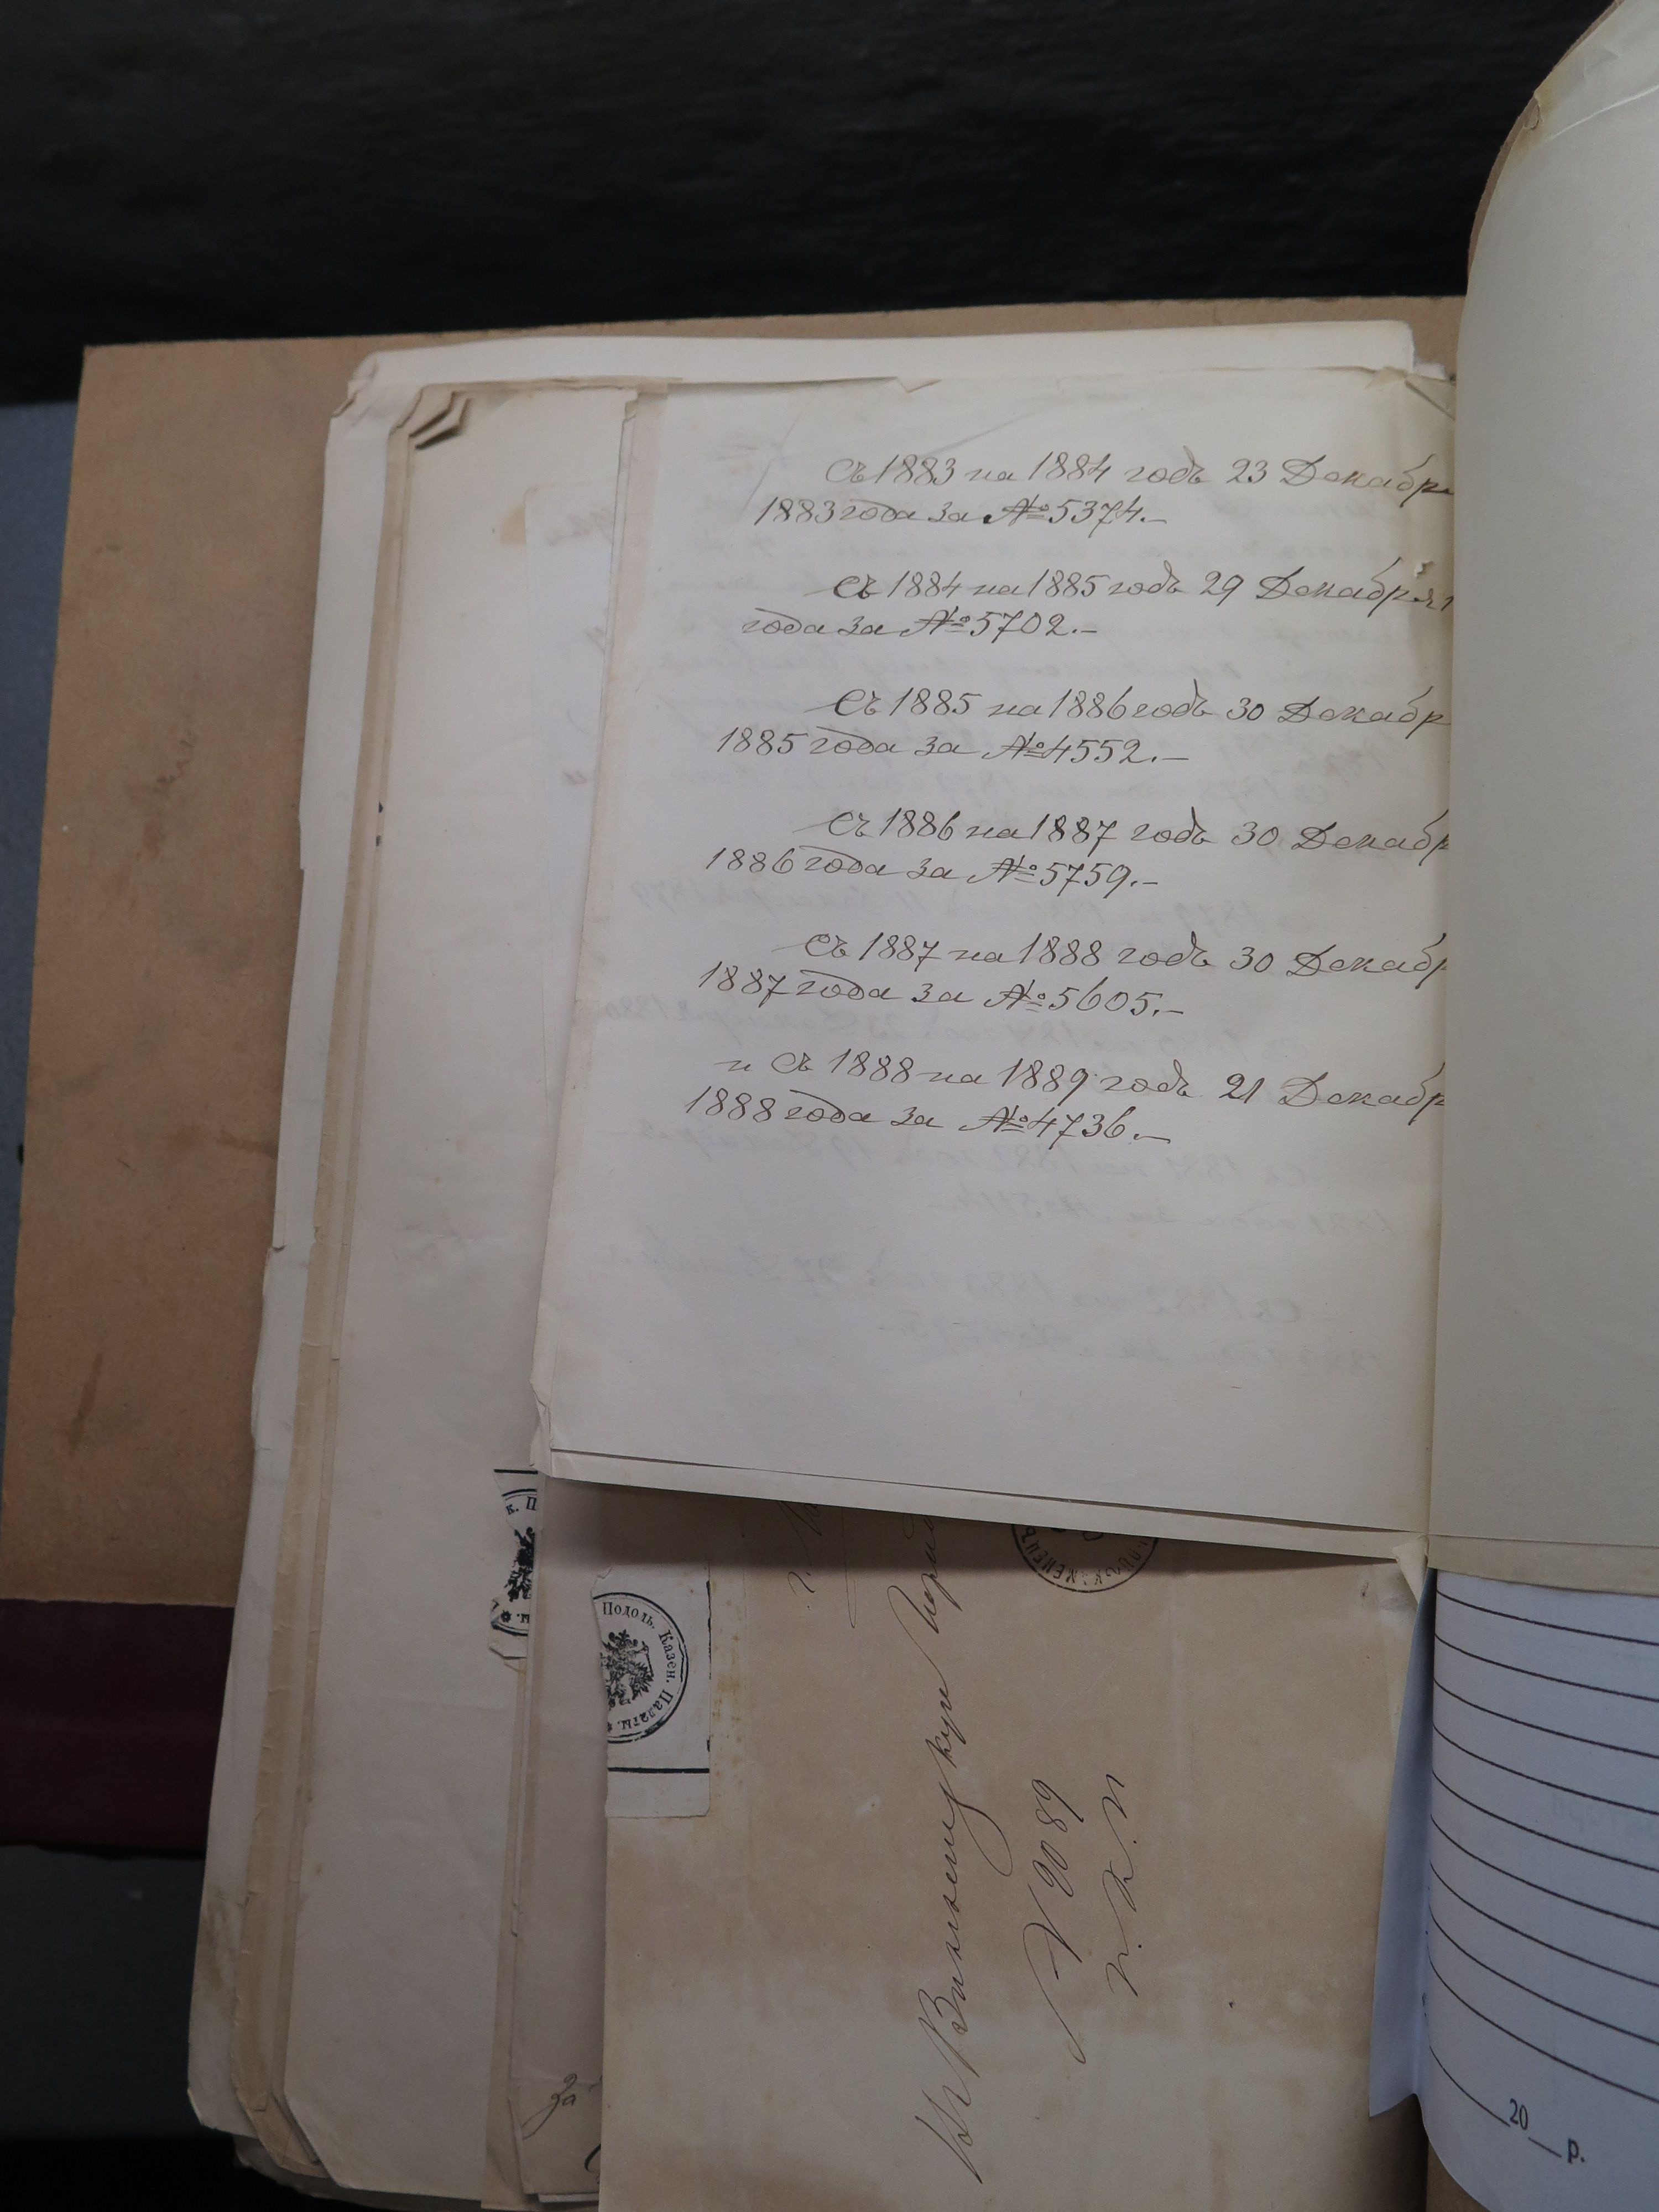 Съ 1883 на 1884 годъ 23 Декабр
1883 года за № 5374.—
Съ 1884 на 1885 годъ 29 Декабря 1
года за № 5702.—
Съ 1885 на 1886 годъ 30 Декабр
1885 года за № 4552.—
Съ 1886 на 1887 годъ 30 Декабр
1886 года за № 5759.—
Съ 1887 на 1888 годъ 30 Декабр
1887 года за № 5605.—
и Съ 1888 на 1889 годъ 21 Декабр
1888 года за № 4736.—
к. П
Подоль. Казен. Палаты.
КАМЕНЕЦЪ
Въ Винницкую
N 2089
за
20__ р.